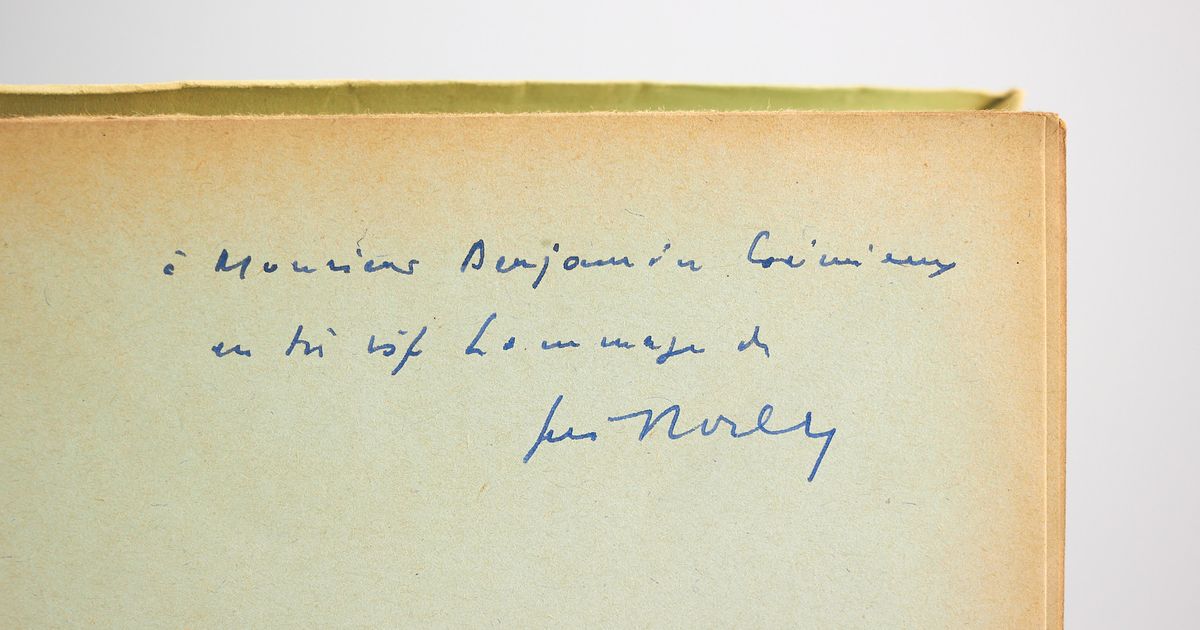 à Monsieur Benjamin Crémieux
en très vif hommage de